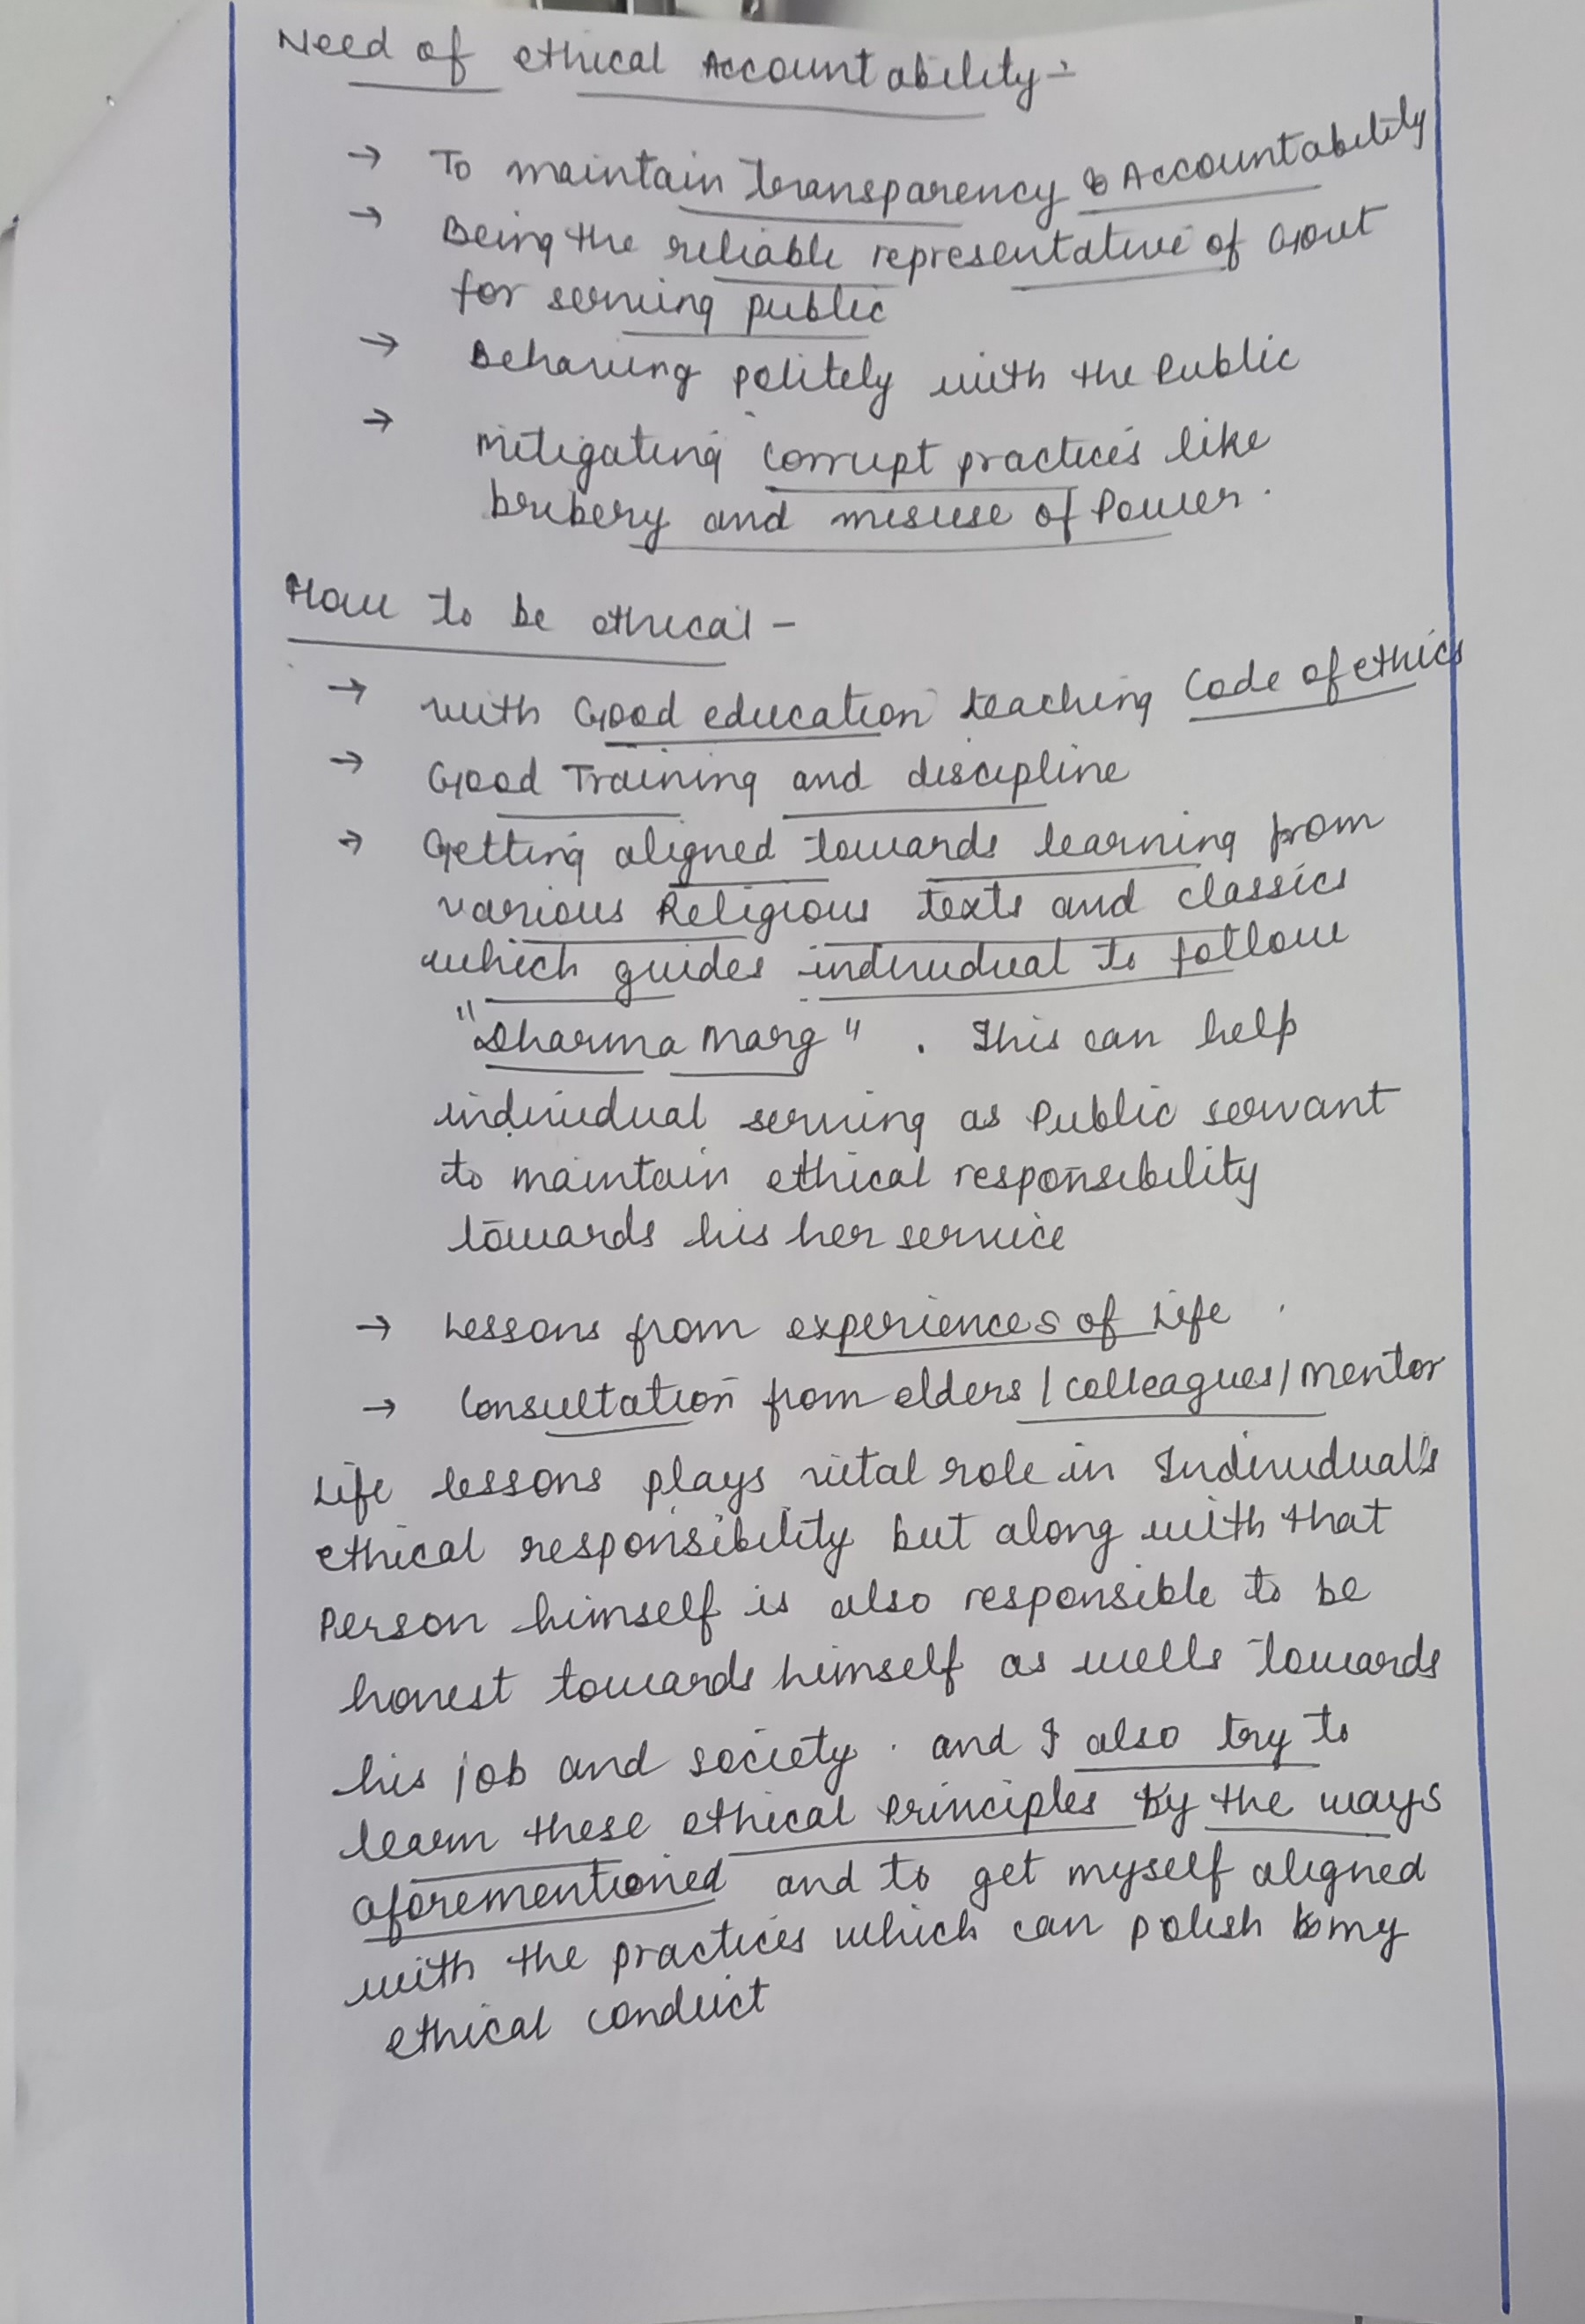 Need of ethical Accountability:-
→ To maintain transparency & Accountability
→ Being the reliable representative of Govt
for serving public
→ Behaving politely with the Public
→ Mitigating corrupt practices like
bribery and misuse of Power.
How to be ethical -
→ with Good education teaching Code of ethics
→ Good Training and discipline
→ Getting aligned towards learning from
various Religious texts and classics
which guides individual to follow
"Dharma Marg". This can help
individual serving as Public servant
to maintain ethical responsibility
towards his her service
→ Lessons from experiences of Life.
→ Consultation from elders/colleagues/mentor
Life lessons plays vital role in Individual's
ethical responsibility but along with that
Person himself is also responsible to be
honest towards himself as wells towards
his job and society. and I also try to
learn these ethical Principles by the ways
aforementioned and to get myself aligned
with the practices which can polish my
ethical conduct